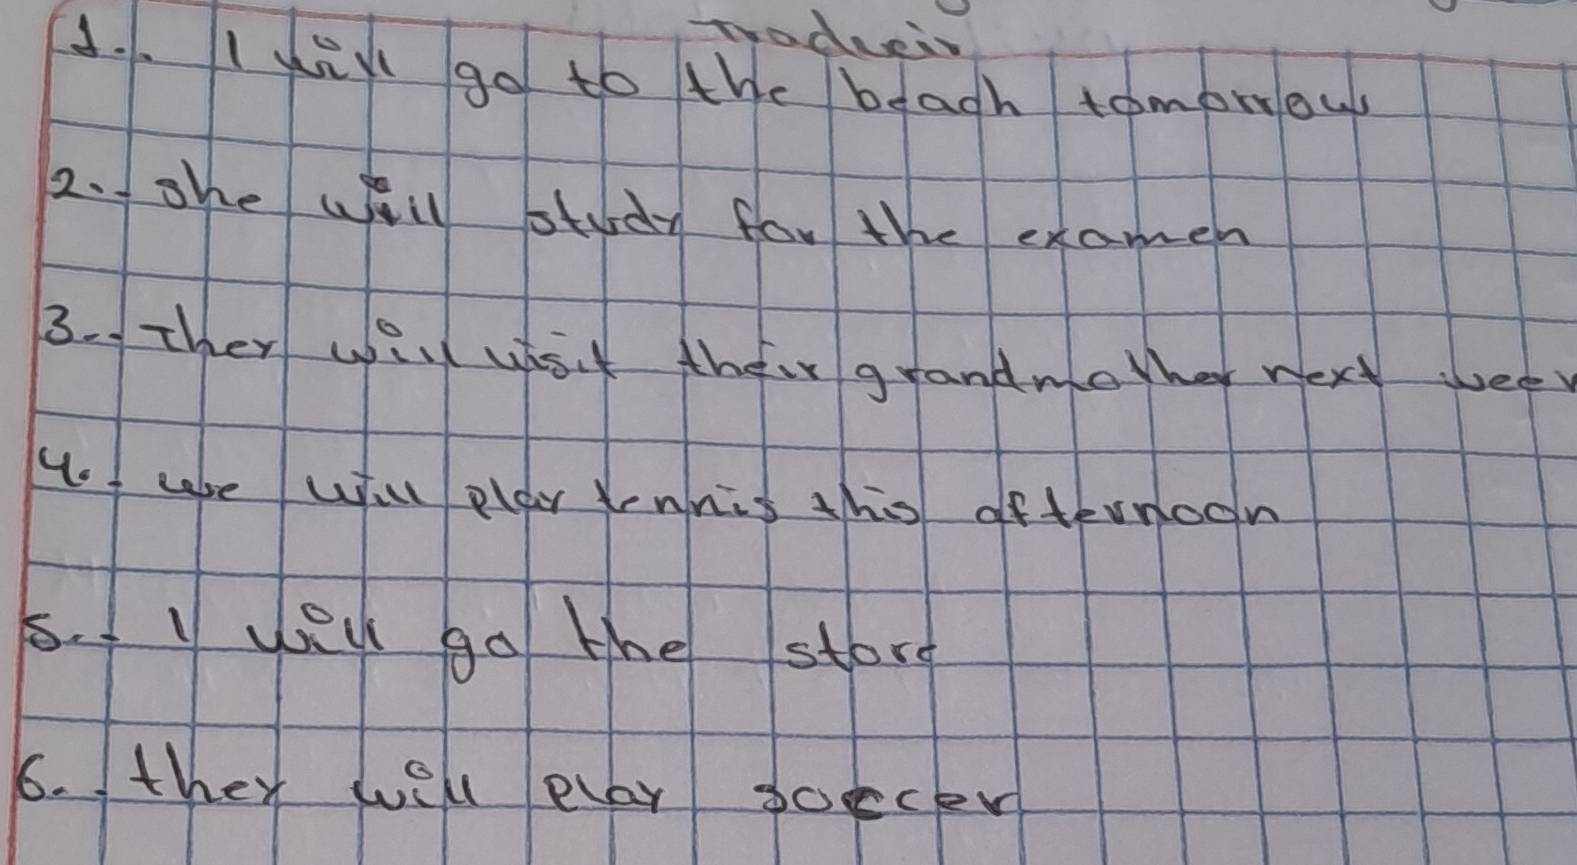 Traducir
1.- I will go to the beach tomorrow
2.- She will study for the examen
3.- They will visit their grandmother next week
4.- we will play tennis this afternoon
5.- I will go the store
6.- they will play soccer